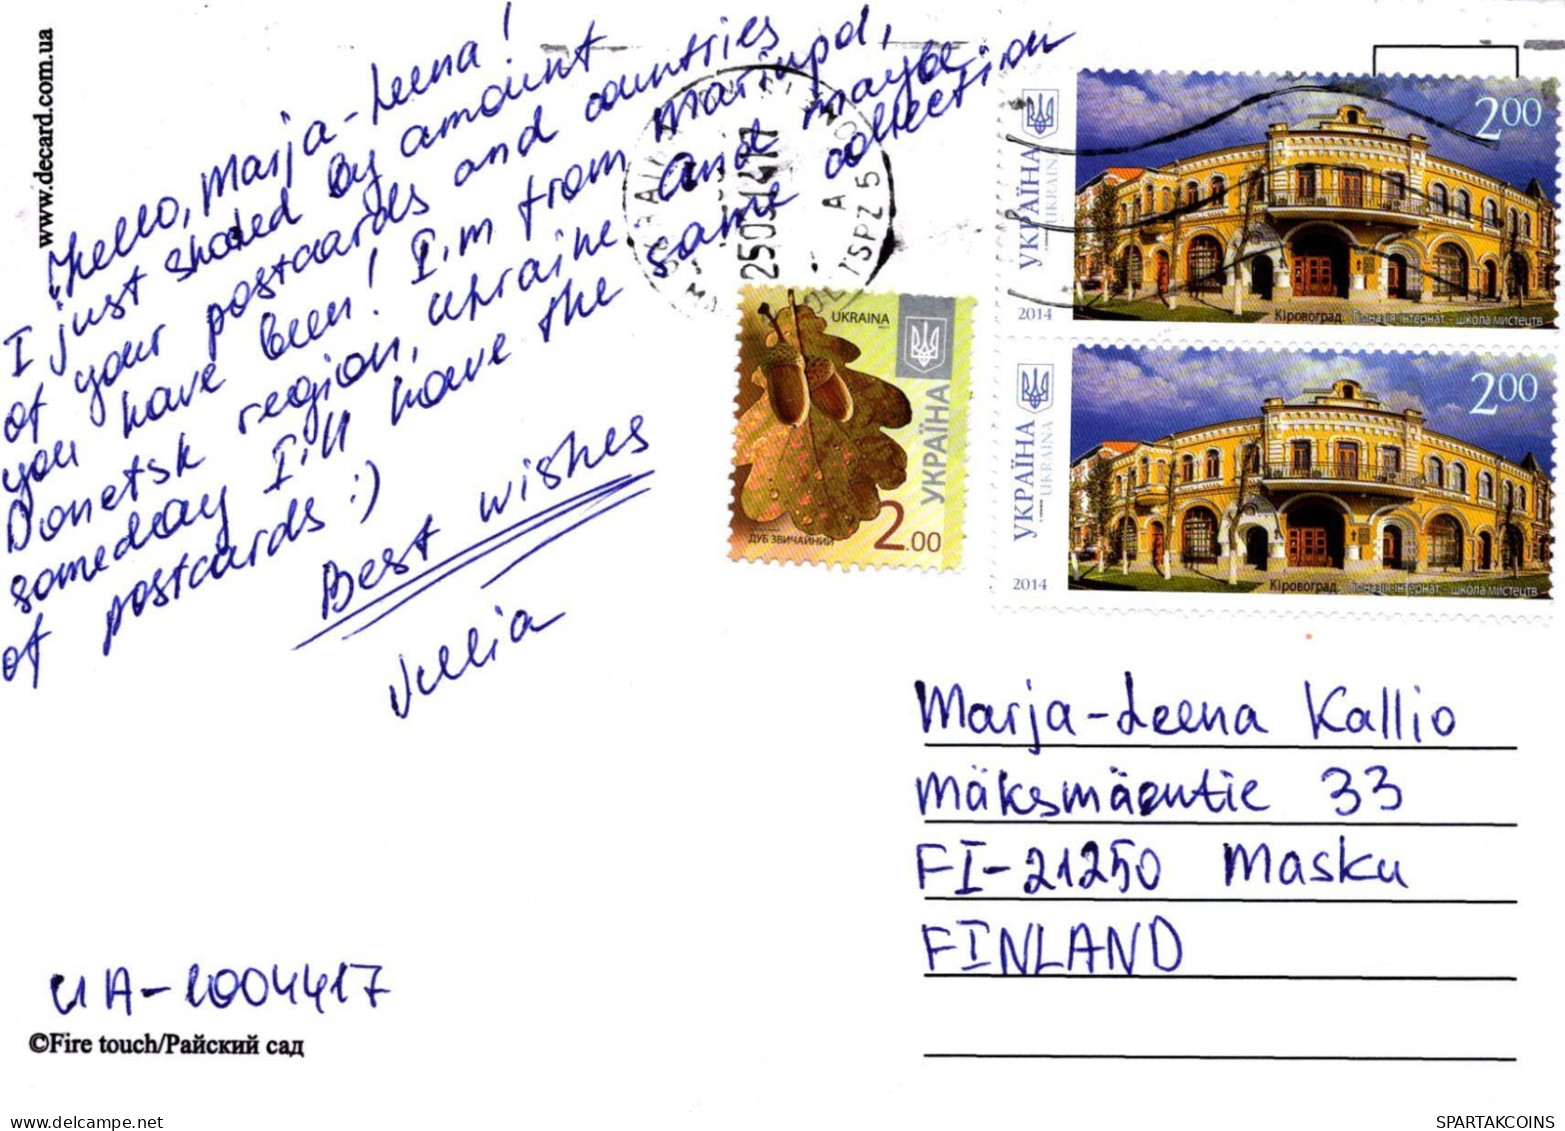 www.decard.com.ua
Hello, Marja-Leena!
I just shoked by amount
of your postcards and countries
you have been! I'm from Mariupol,
Donetsk region, Ukraine and maybe
someday I'll have the same collection
of postcards :)
Best wishes
Julia
25 03 14 17
UKRAINA
УКРАЇНА
ДУБ ЗВИЧАЙНИЙ
2.00
УКРАЇНА
UKRAINE
2014
2.00
Кіровоград. Гімназія-інтернат – школа мистецтв
УКРАЇНА
UKRAINE
2014
2.00
Кіровоград. Гімназія-інтернат – школа мистецтв
Marja-Leena Kallio
Mäksmäentie 33
FI-21250 Masku
FINLAND
UA-1004417
©Fire touch/Райский сад
https://www.delcampe.net
SPARTAKCOINS